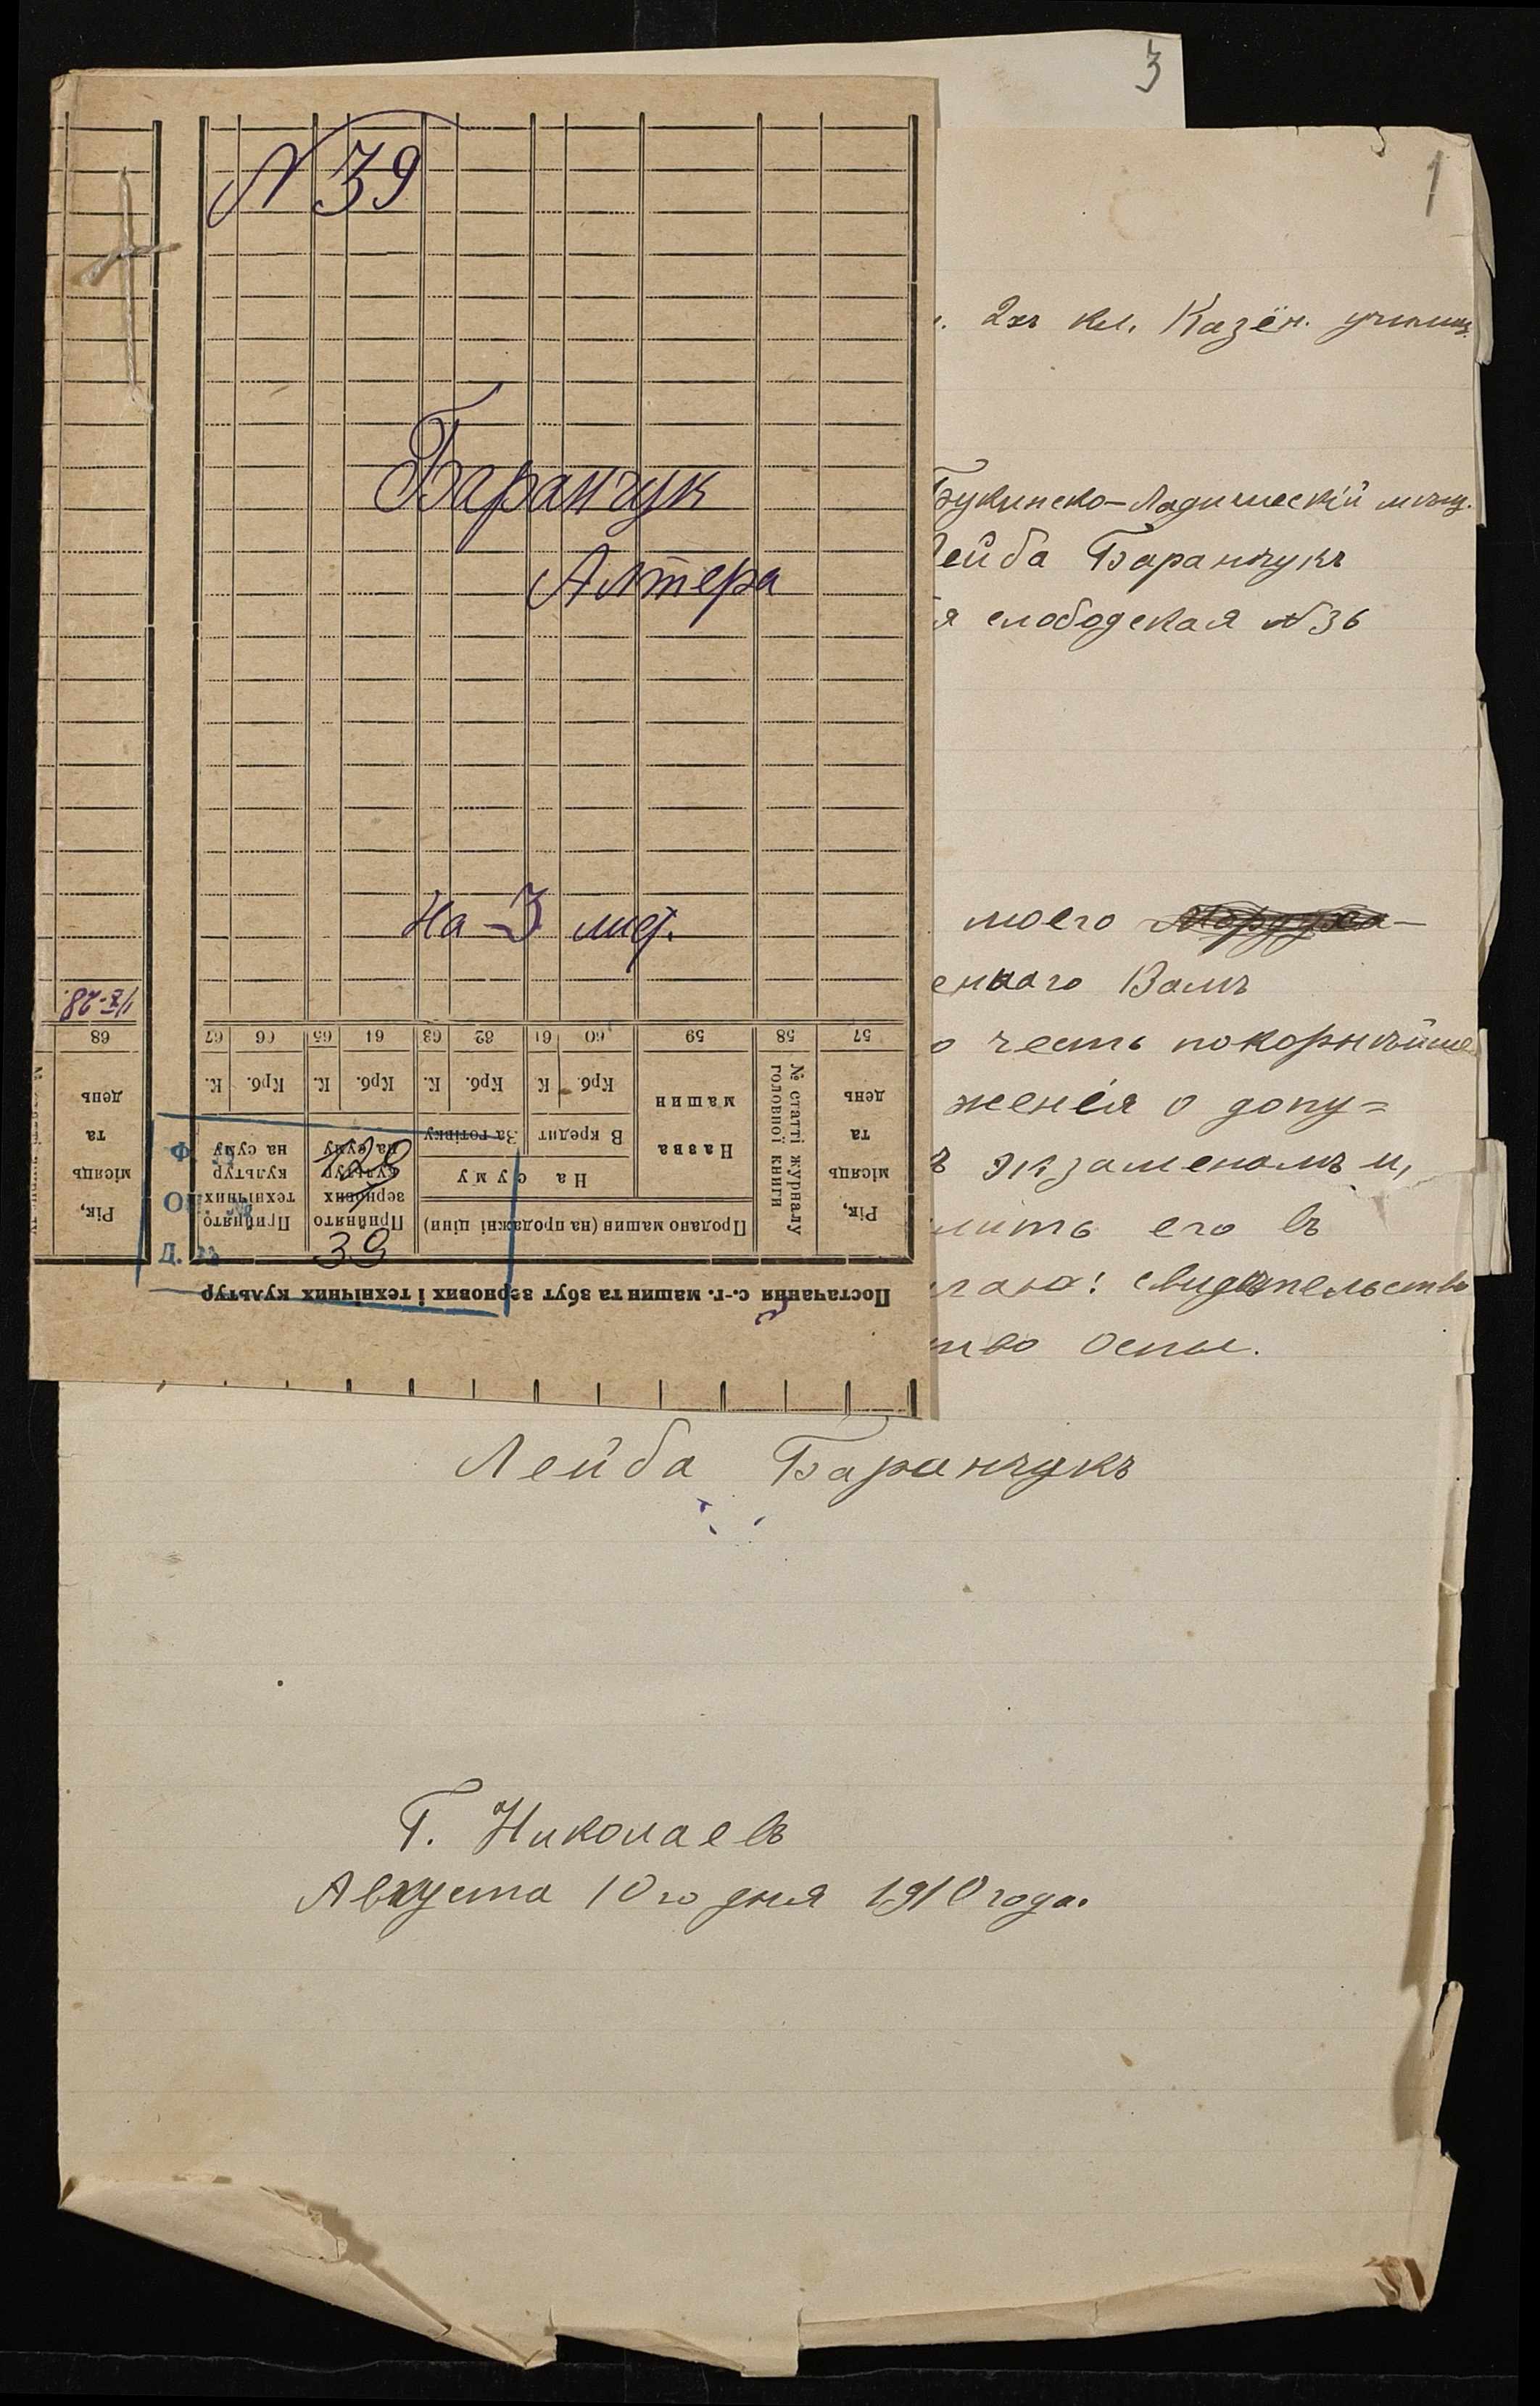 3
1
N 39
Баранчук
Алтера
На 3 лист.
1/X-28.
2хъ кл. Казён. училищ.
Букинско-Ладишескій мѣщ.
Лейба Баранчукъ
слободская N 36
моего
Вамъ
честь покорнѣйше
женія о допу=
экзаменамъ и,
его въ
гаю: свидѣтельство
оспы.
Лейба Баранчукъ
Г. Николаевъ
Августа 10го дня 1910 года.
Постачання с.-г. машин та збут зернових і технічних культур
Рік, місяць та день
№ статті журналу головної книги
Продано машин (на продажні ціни)
Назва машин
На суму
В кредит
За готівку
Прийнято зернових культур на суму
Прийнято технічних культур на суму
Рік, місяць та день
Крб.
К.
Крб.
К.
Крб.
К.
Крб.
К.
57
58
59
60
61
62
63
64
65
66
67
68
Ф.
Д.
39